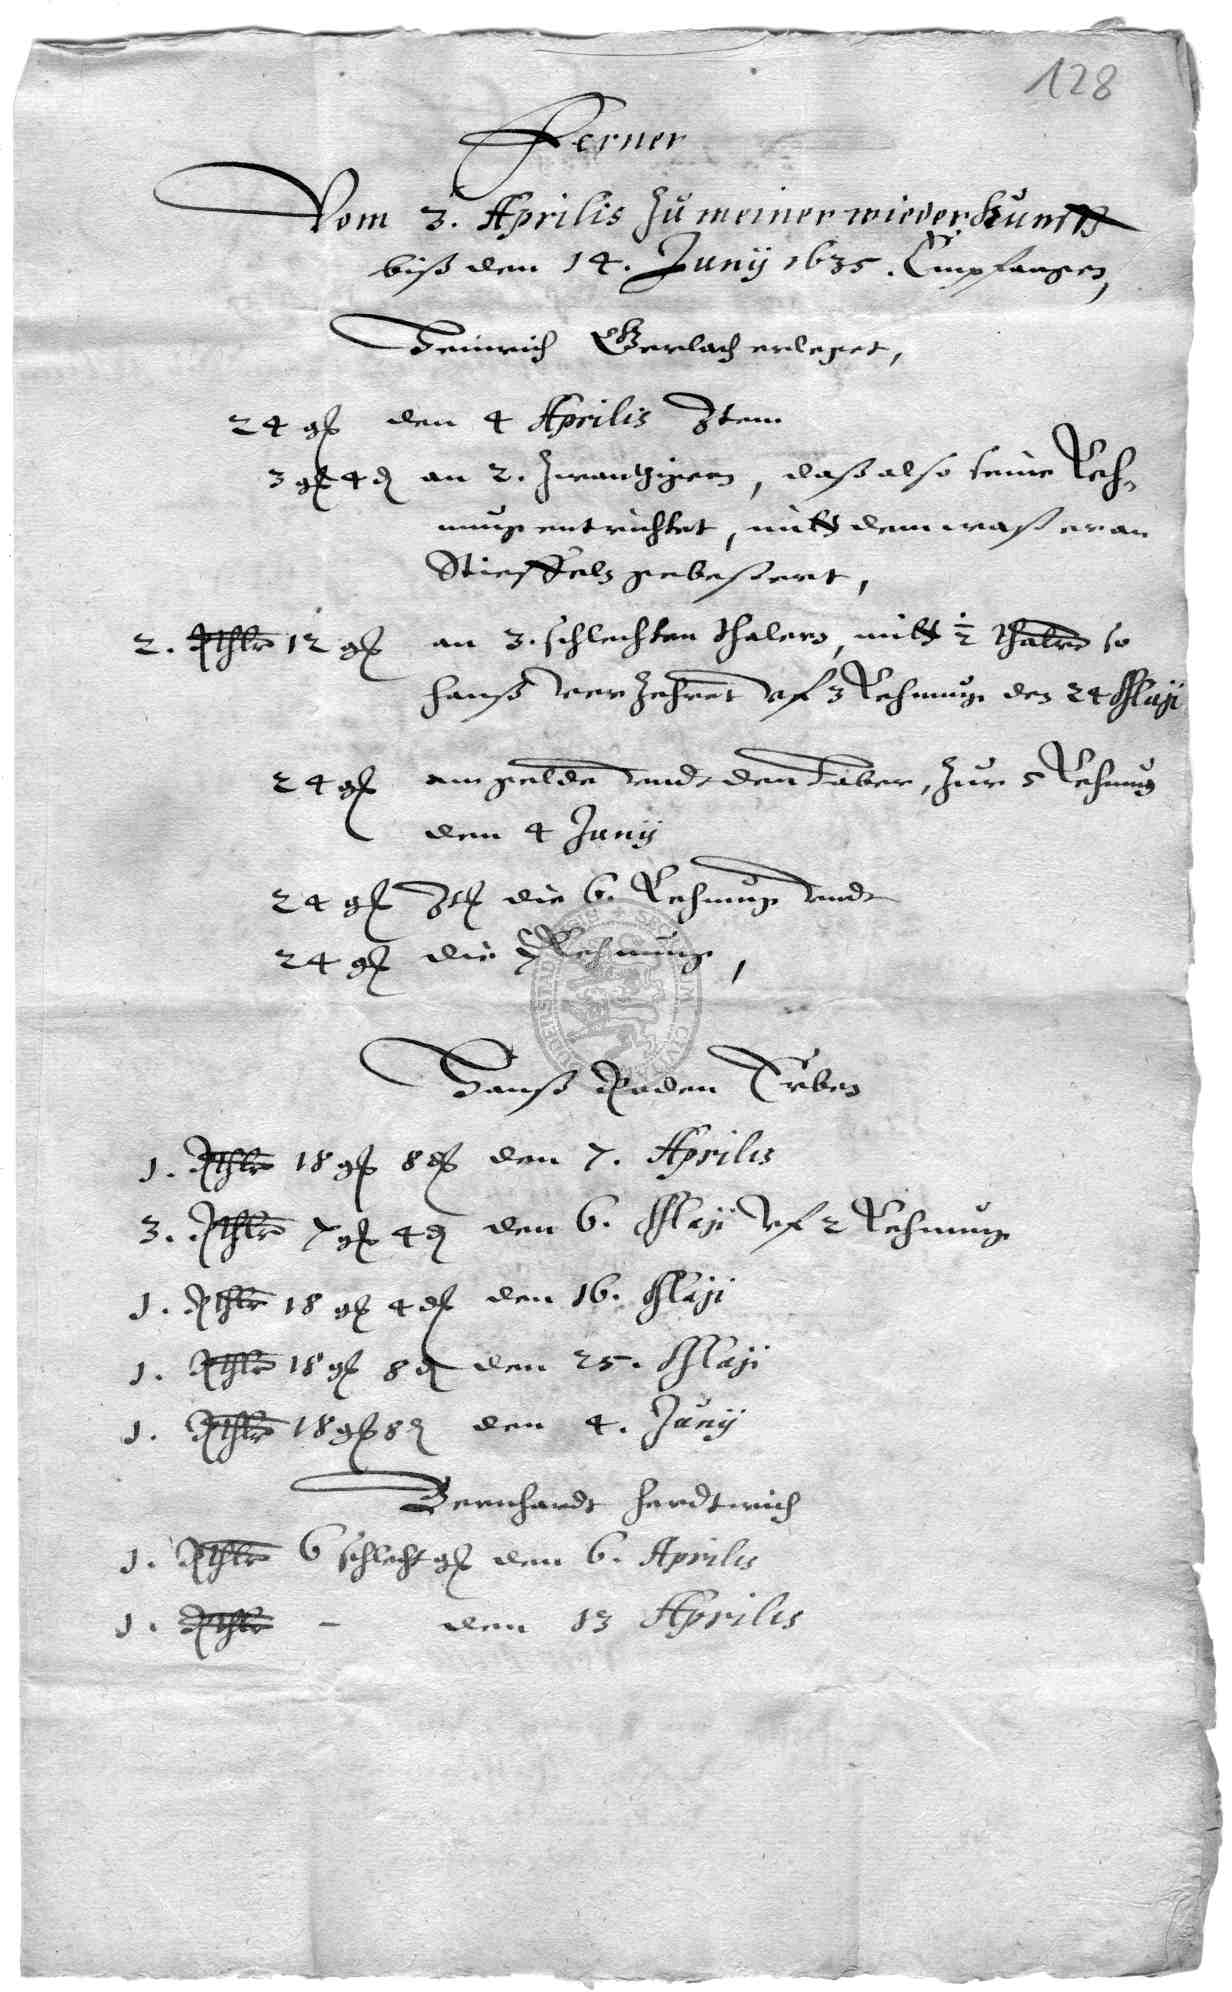 128
Ferner
Vom 3. Aprilis Zu meiner wiederkunfft
biß den 14. Junij 1635. Empfangen,
Heinrich Gerlach erleget,
24 gl den 4 Aprilis Item
3 gl 4 d an 2. Zwantzigern, daß also seine Rech-
nung entrichtet, mitt dem waß er an
Stieffeln gebeßert,
2. Rthlr 12 gl an 3. schlechten thalern, mitt ½ thaler so
hanß verzehret vf 3 Rechnung den 24 Maji
24 gl am gelde vndt den, Zur 5 Rechnung
den 4 Junij
24 gl die 6. Rechnung vndt
24 gl die 7 Rechnung,
Hanß Roden Erben
1. Rthlr 18 gl 8 d den 7. Aprilis
3. Rthlr 7 gl 4 d den 6. Maji vf 2 Rechnung
1. Rthlr 18 gl 4 d den 16. Maji
1. Rthlr 18 gl 8 d den 25. Maji
1. Rthlr 18 gl 8 d den 4. Junij
Bernhardt hardtwich
1. Rthlr 6 schlecht gl den 6. Aprilis
1. Rthlr - den 13 Aprilis